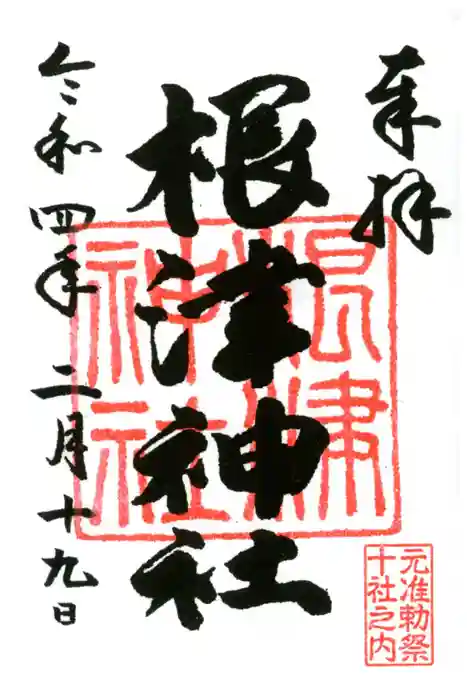 奉拝
根津神社
令和四年二月十九日
根津
神社
元准勅祭
十社之内